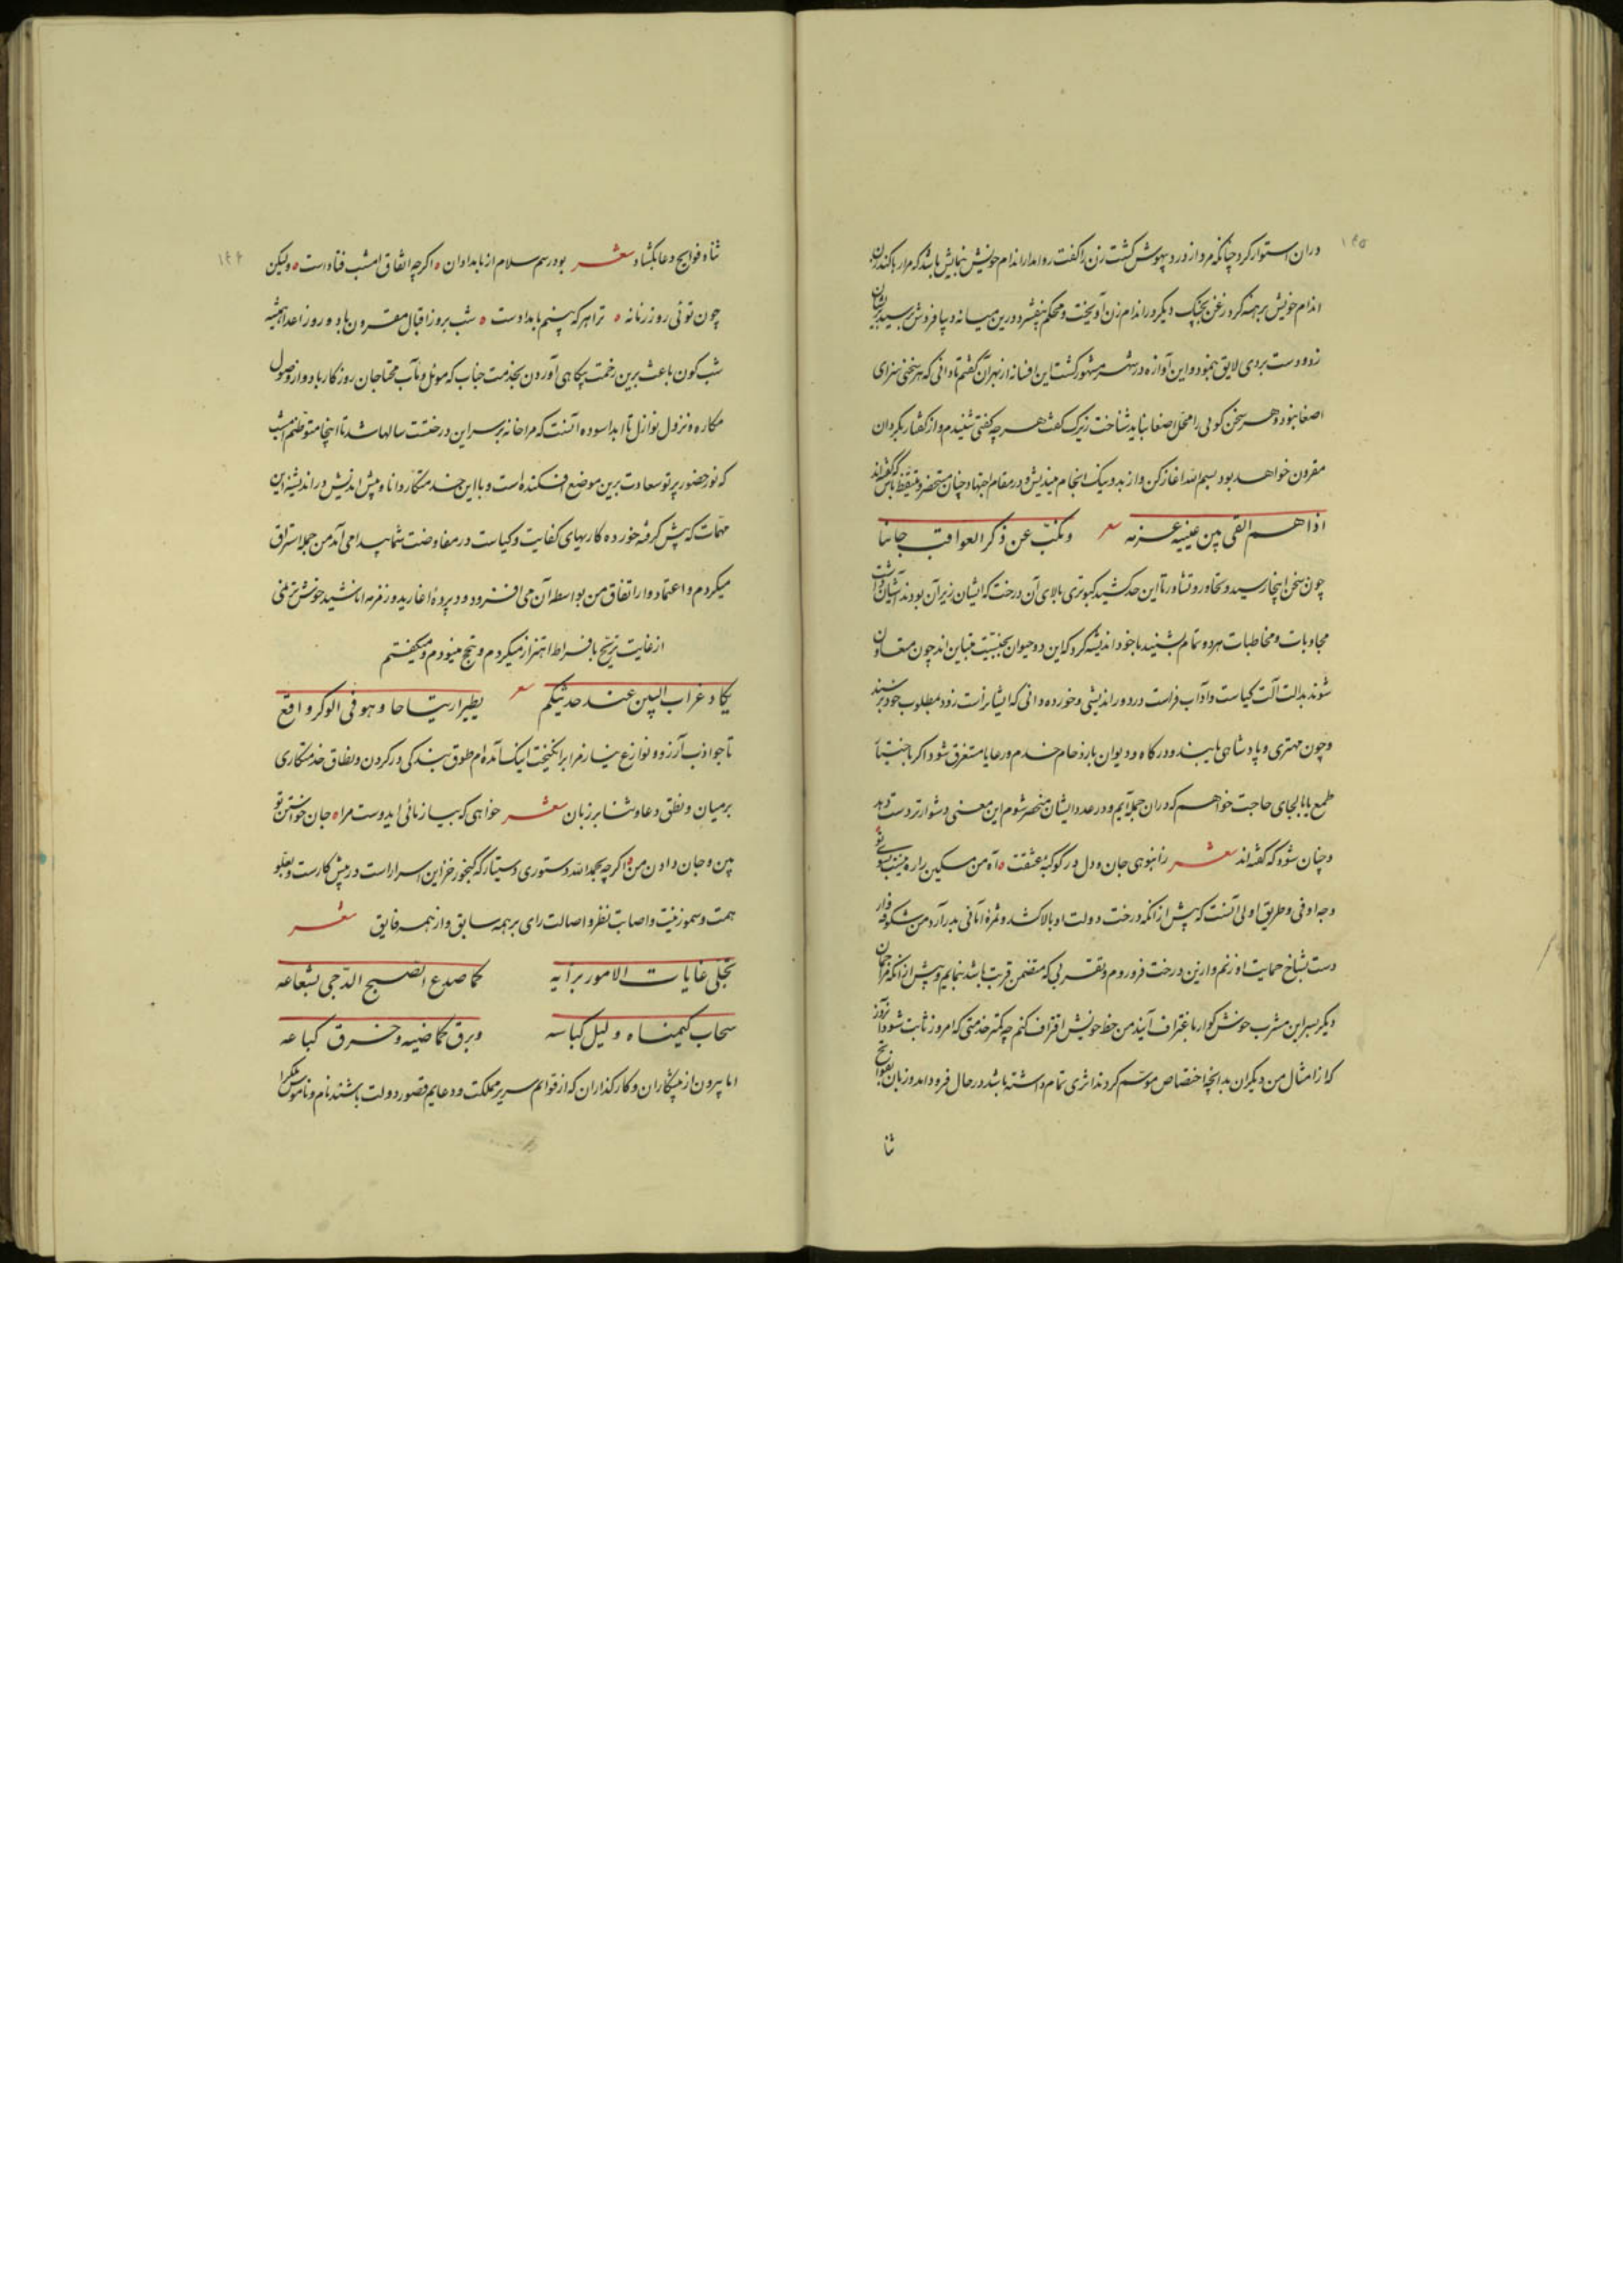 ۱۴۵
دران استوار کرد چنانکه مرد از درد بیهوش گشت زن را گفت روا مدار اندام خویش بنمایش باشد که مرا رها کند زن
اندام خویش برهنه کرد زغن بچنگ دیگر در اندام زن آویخت و محکم بیفشرد درین میانه دیبا فروش برسید بریشان
زد و دست بردی لایق بنمود و این آوازه در شهر مشهور گشت این افسانه از بهر آن گفتم تا دانی که هر سخنی سزای
اصغا نبود و هر سخن گوئی را محل اصغا نباید شناخت زیرک گفت هر چه گفتی شنیدم و از گفتار بکردار
مقرون خواهد بود بسم الله آغاز کن و از بد و نیک انجام میندیش و در مقام اجتهاد چنان مستحضر و متیقظ باش که گفته‌اند
اذا هم القی بین عینیه عزمه شعر ونکب عن ذکر العواقب جانبا
چون سخن اینجا رسید و تحاور و تشاور تا این حد کشید کبوتری بالای آن درخت که ایشان زیر آن بودند آشیان داشت
مجاوبات و مخاطبات هر دو تمام بشنید با خود اندیشه کرد که این دو حیوان بجنسیت متباین‌اند چون متعاون
شوند بدالت آلت کیاست و آداب فراست در دور اندیشی و خورده دانی که ایشانراست زود بمطلوب خود برسند
و چون مهتری و پادشاهی یابند و درگاه و دیوان بازدحام خدم و رعایا مستغرق شود اگر
طمع یا بالجای حاجت خواهم که دران جمله آیم و در عدد ایشان منحصر شوم این معنی دشوارتر دست دهد
و چنان شود که گفته‌اند شعر ز انبوهی جان و دل در کوکبهٔ عشقت ه آه من مسکین را ره نیست بسوی تو
وجه اوفی و طریق اولی آنست که پیش از انکه درخت دولت او بالا کشد و ثمرهٔ امانی بدر آرد من شکوفه وار
دست بشاخ حمایت او زنم و ازین درخت فرو روم و تقربی که متضمن قربت باشد بنمایم و پیش از انکه مزاحمان
دیگر بسر این مشرب خوش گوار باغتراف آیند من حظ خویش اقتراف کنم چه کمتر خدمتی که امروز ثابت شود
که از امثال من دیگران بدانچه اختصاص موسم گردند اثری تمام داشته باشد در حال فرود آمد و زبان بفوایح
ثنا
۱۴۶
ثنا و فوایح دعا بگشاد شعر بود رسم سلام از بامدادان ه اگر چه اتفاق امشب فتادست ه ولیکن
چون توئی روز زمانه ه ترا هر گه که بینم بامدادست ه شب بروز اقبال مقرون باد و روز اعدا همیشه
شب گون باعث برین زحمت بیگاهی آوردن بخدمت جناب که موئل و مآب محتاجان روزگار باد و از وصول
مکاره و نزول نوازل تا ابد آسوده آنست که مرا خانه بر سر این درختست سالها شد تا اینجا متوطنم امشب
که نور حضور پرتو سعادت برین موضع افکنده است و با این خدمتکار دانا و پیش اندیش در اندیشه این
مهمات که پیش گرفته خورده کاریهای کفایت و کیاست در مفاوضت شما پیدا می آمد من جمله استراق
میکردم و اعتماد وار اتفاق من بواسطه آن می افزود و در پردهٔ اغارید و زمزمه اناشید خوش ترنمی
از غایت ترنح بافراط اهتزاز میکردم و تبجح مینودم و میگفتم
یکاد غراب البین عند حدیثکم شعر یطیر ارتیاحا وهو فی الوکر واقع
تا جواذب آرزو و نوازع نیاز مرا برانگیخت اینک آمده‌ام طوق بندگی در گردن و نطاق خدمتکاری
بر میان و نطق دعا و ثنا بر زبان شعر خواهی که بیازمائی ایدوست مرا ه جان خواستن تو
بین و جان دادن من ه اگر چه بحمد الله دستوری دستیار که گنجور خزاین اسرار است در پیش کارست و بعلو
همت و سمو زینت و اصابت نظر و اصالت رای بر همه سابق و از همه فایق شعر
تجلی غایات الامور برأیه کما صدع الصبح الدجی بشعاعه
سحاب کیمناه ولیل کباسه وبرق کماضیه وخرق کباعه
اما بیرون از پیشکاران و کارگذاران که از قوایم سریر مملکت و دعایم قصور دولت باشند نام و ناموس